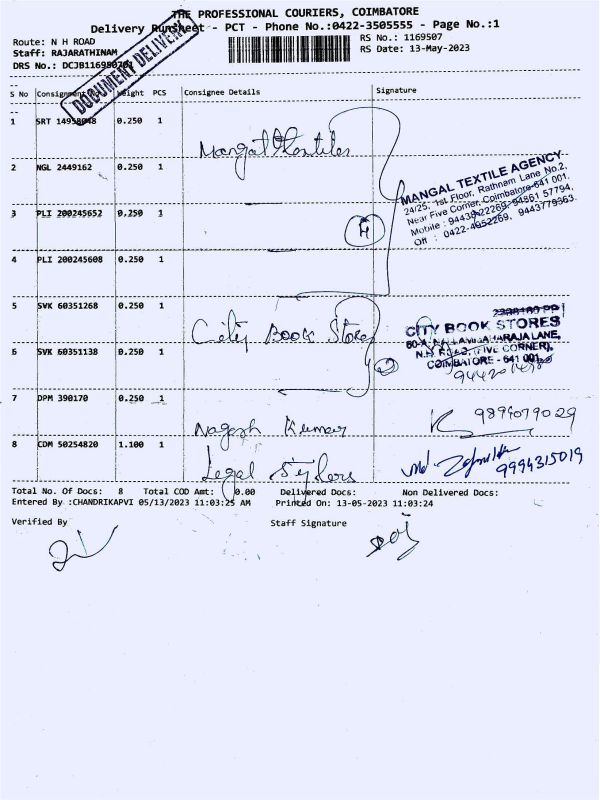 THE PROFESSIONAL COURIERS, COIMBATORE
Delivery Runsheet - PCT - Phone No.:0422-3505555 - Page No.:1
Route: N H ROAD RS No.: 1169507
Staff: RAJARATHINAM RS Date: 13-May-2023
DRS No.:
DOCUMENT DELIVERY
S No Consignment No Weight PCS Consignee Details Signature
1 SRT 0.250 1 Mangal Textiles
2 NGL 2449162 0.250 1
MANGAL TEXTILE AGENCY
24/25, 1st Floor, Rathnam Lane No.2,
Near Five Corner, Coimbatore-641 001.
Mobile : 94861 57794,
Off : 9443779363.
3 PLI 200245652 0.250 1 4
4 PLI 200245608 0.250 1
5 SVK 60351268 0.250 1 City Book Stores
CITY BOOK STORES
N.H. ROAD, (FIVE CORNER),
COIMBATORE - 641 001.
6 SVK 60351138 0.250 1 2
7 DPM 390170 0.250 1 Nagesh Kumar
8 CDM 50254820 1.100 1 Legal Stylers 9994315019
Total No. Of Docs: 8 Total COD Amt: 0.00 Delivered Docs: Non Delivered Docs:
Entered By :CHANDRIKAPVI 05/13/2023 11:03:25 AM Printed On: 13-05-2023 11:03:24
Verified By Staff Signature